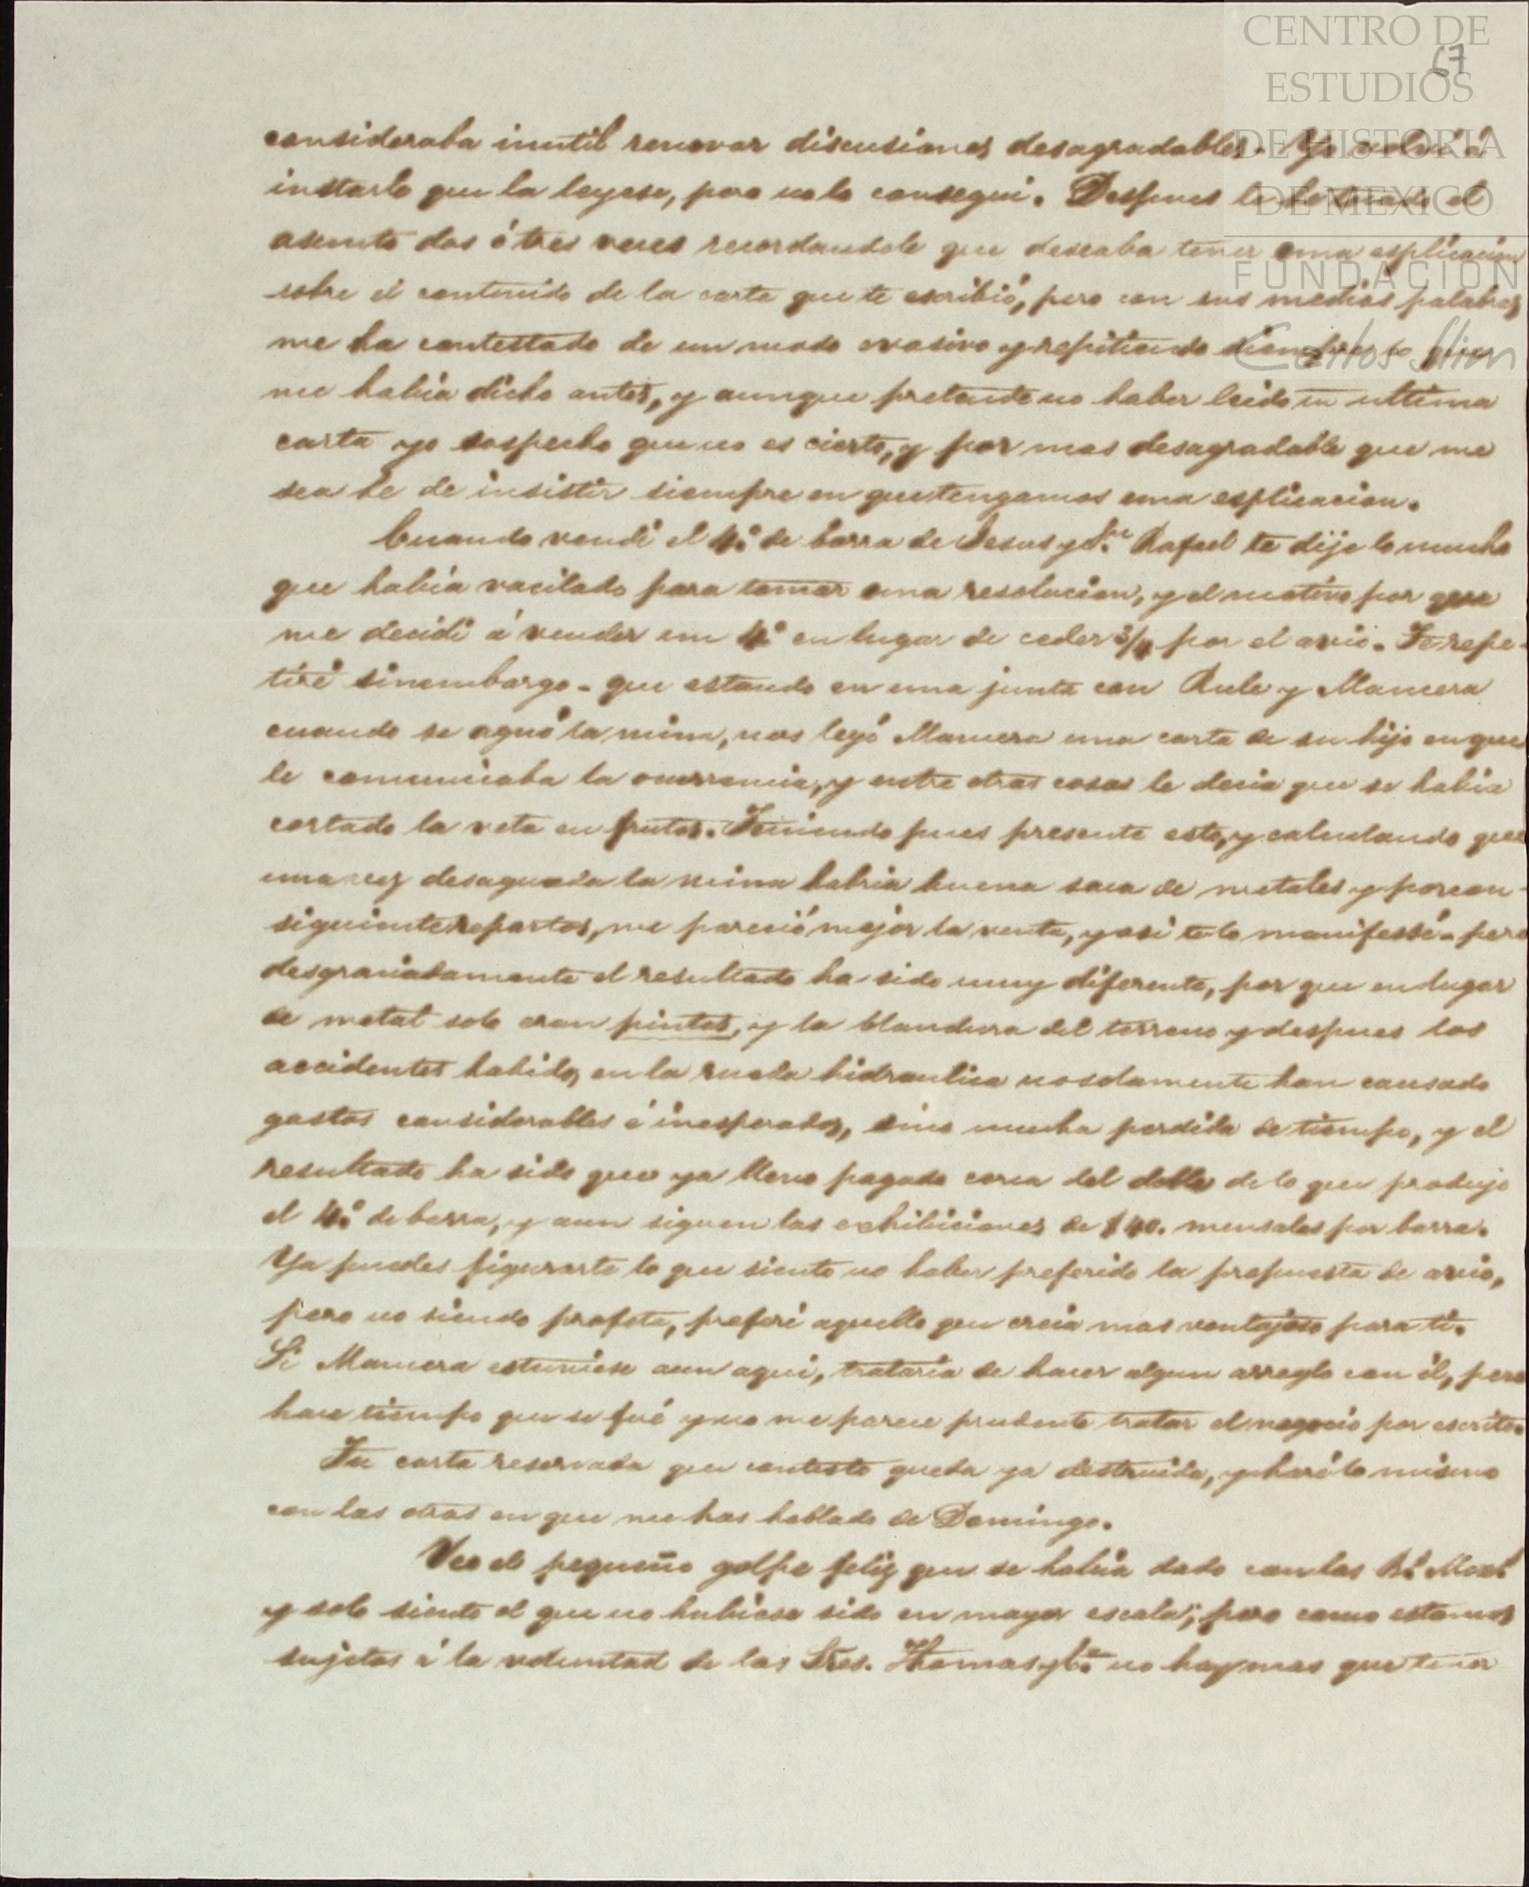 CENTRO DE
ESTUDIOS
DE HISTORIA
DE MEXICO
FUNDACION
Carlos Slim
67
consideraba inutil renovar discusiones desagradables. Yo volví á
instarlo que la leyese, pero no lo consegui. Despues le he tocado el
asunto dos ó tres veces recordandole que deseaba tener una esplicacion
sobre el contenido de la carta que te escribió, pero con sus medias palabras
me ha contestado de un modo evasivo y repitiendo siempre lo que
me había dicho antes, y aunque pretende no haber leido tu ultima
carta yo sospecho que no es cierto, y por mas desagradable que me
sea he de insistir siempre en que tengamos una esplicacion.
Cuando vendí el 4.º de barra de Jesus y Sn. Rafael te dije lo mucho
que había vacilado para tomar una resolucion, y el motivo por que
me decidí á vender un 4.º en lugar de ceder 3/4 por el avio. Te repe-
tiré sinembargo - que estando en una junta con Rule y Mancera
cuando se aguó la mina, nos leyó Mancera una carta de su hijo en que
le comunicaba la ocurrencia, y entre otras cosas le decia que se había
cortado la veta en frutos. Teniendo pues presente esto, y calculando que
una vez desaguada la mina habria buena saca de metales y por con-
siguiente repartos, me pareció mejor la venta, y asi te lo manifesté - pero
desgraciadamente el resultado ha sido muy diferente, por que en lugar
de metal solo eran pintas, y la blandura del terreno y despues los
accidentes habidos en la rueda hidraulica no solamente han causado
gastos considerables é inesperados, sino mucha perdida de tiempo, y el
resultado ha sido que ya llevo pagado cerca del doble de lo que produjo
el 4.º de barra, y aun siguen las exhibiciones de $40. mensales por barra.
Ya puedes figurarte lo que siento no haber preferido la propuesta de avio,
pero no siendo profeta, preferi aquello que creia mas ventajoso para ti.
Si Mancera estuviese aun aqui, trataria de hacer algun arreglo con él, pero
hace tiempo que se fué y no me parece prudente tratar el negocio por escrito.
Tu carta reservada que contesto queda ya destruida, y haré lo mismo
con las otras en que me has hablado de Domingo.
Veo el pequeño golpe feliz que se había dado con las Bs. Mexs.
y solo siento el que no hubiese sido en mayor escala; pero como estamos
sujetos á la voluntad de los Sres. Thomas y Ca. no hay mas que tener